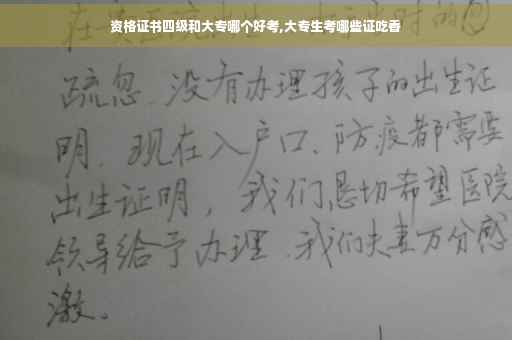 资格证书四级和大专哪个好考,大专生考哪些证吃香
疏忽.没有办理孩子的出生证
明.现在入户口、防疫都需要
出生证明，我们恳切希望医院
领导给予办理.我们夫妻万分感
激。